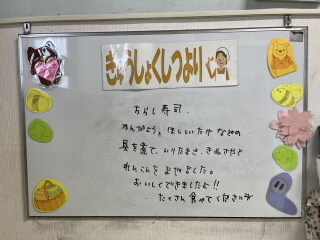 きゅうしょくしつより
ちらし寿司
かんぴょう、ほししいたけ なめの
具を煮て、いりたまご、きぬさやと
れんこんをまぜました。
おいしくできましたよ!!
たくさん食べてくださいね